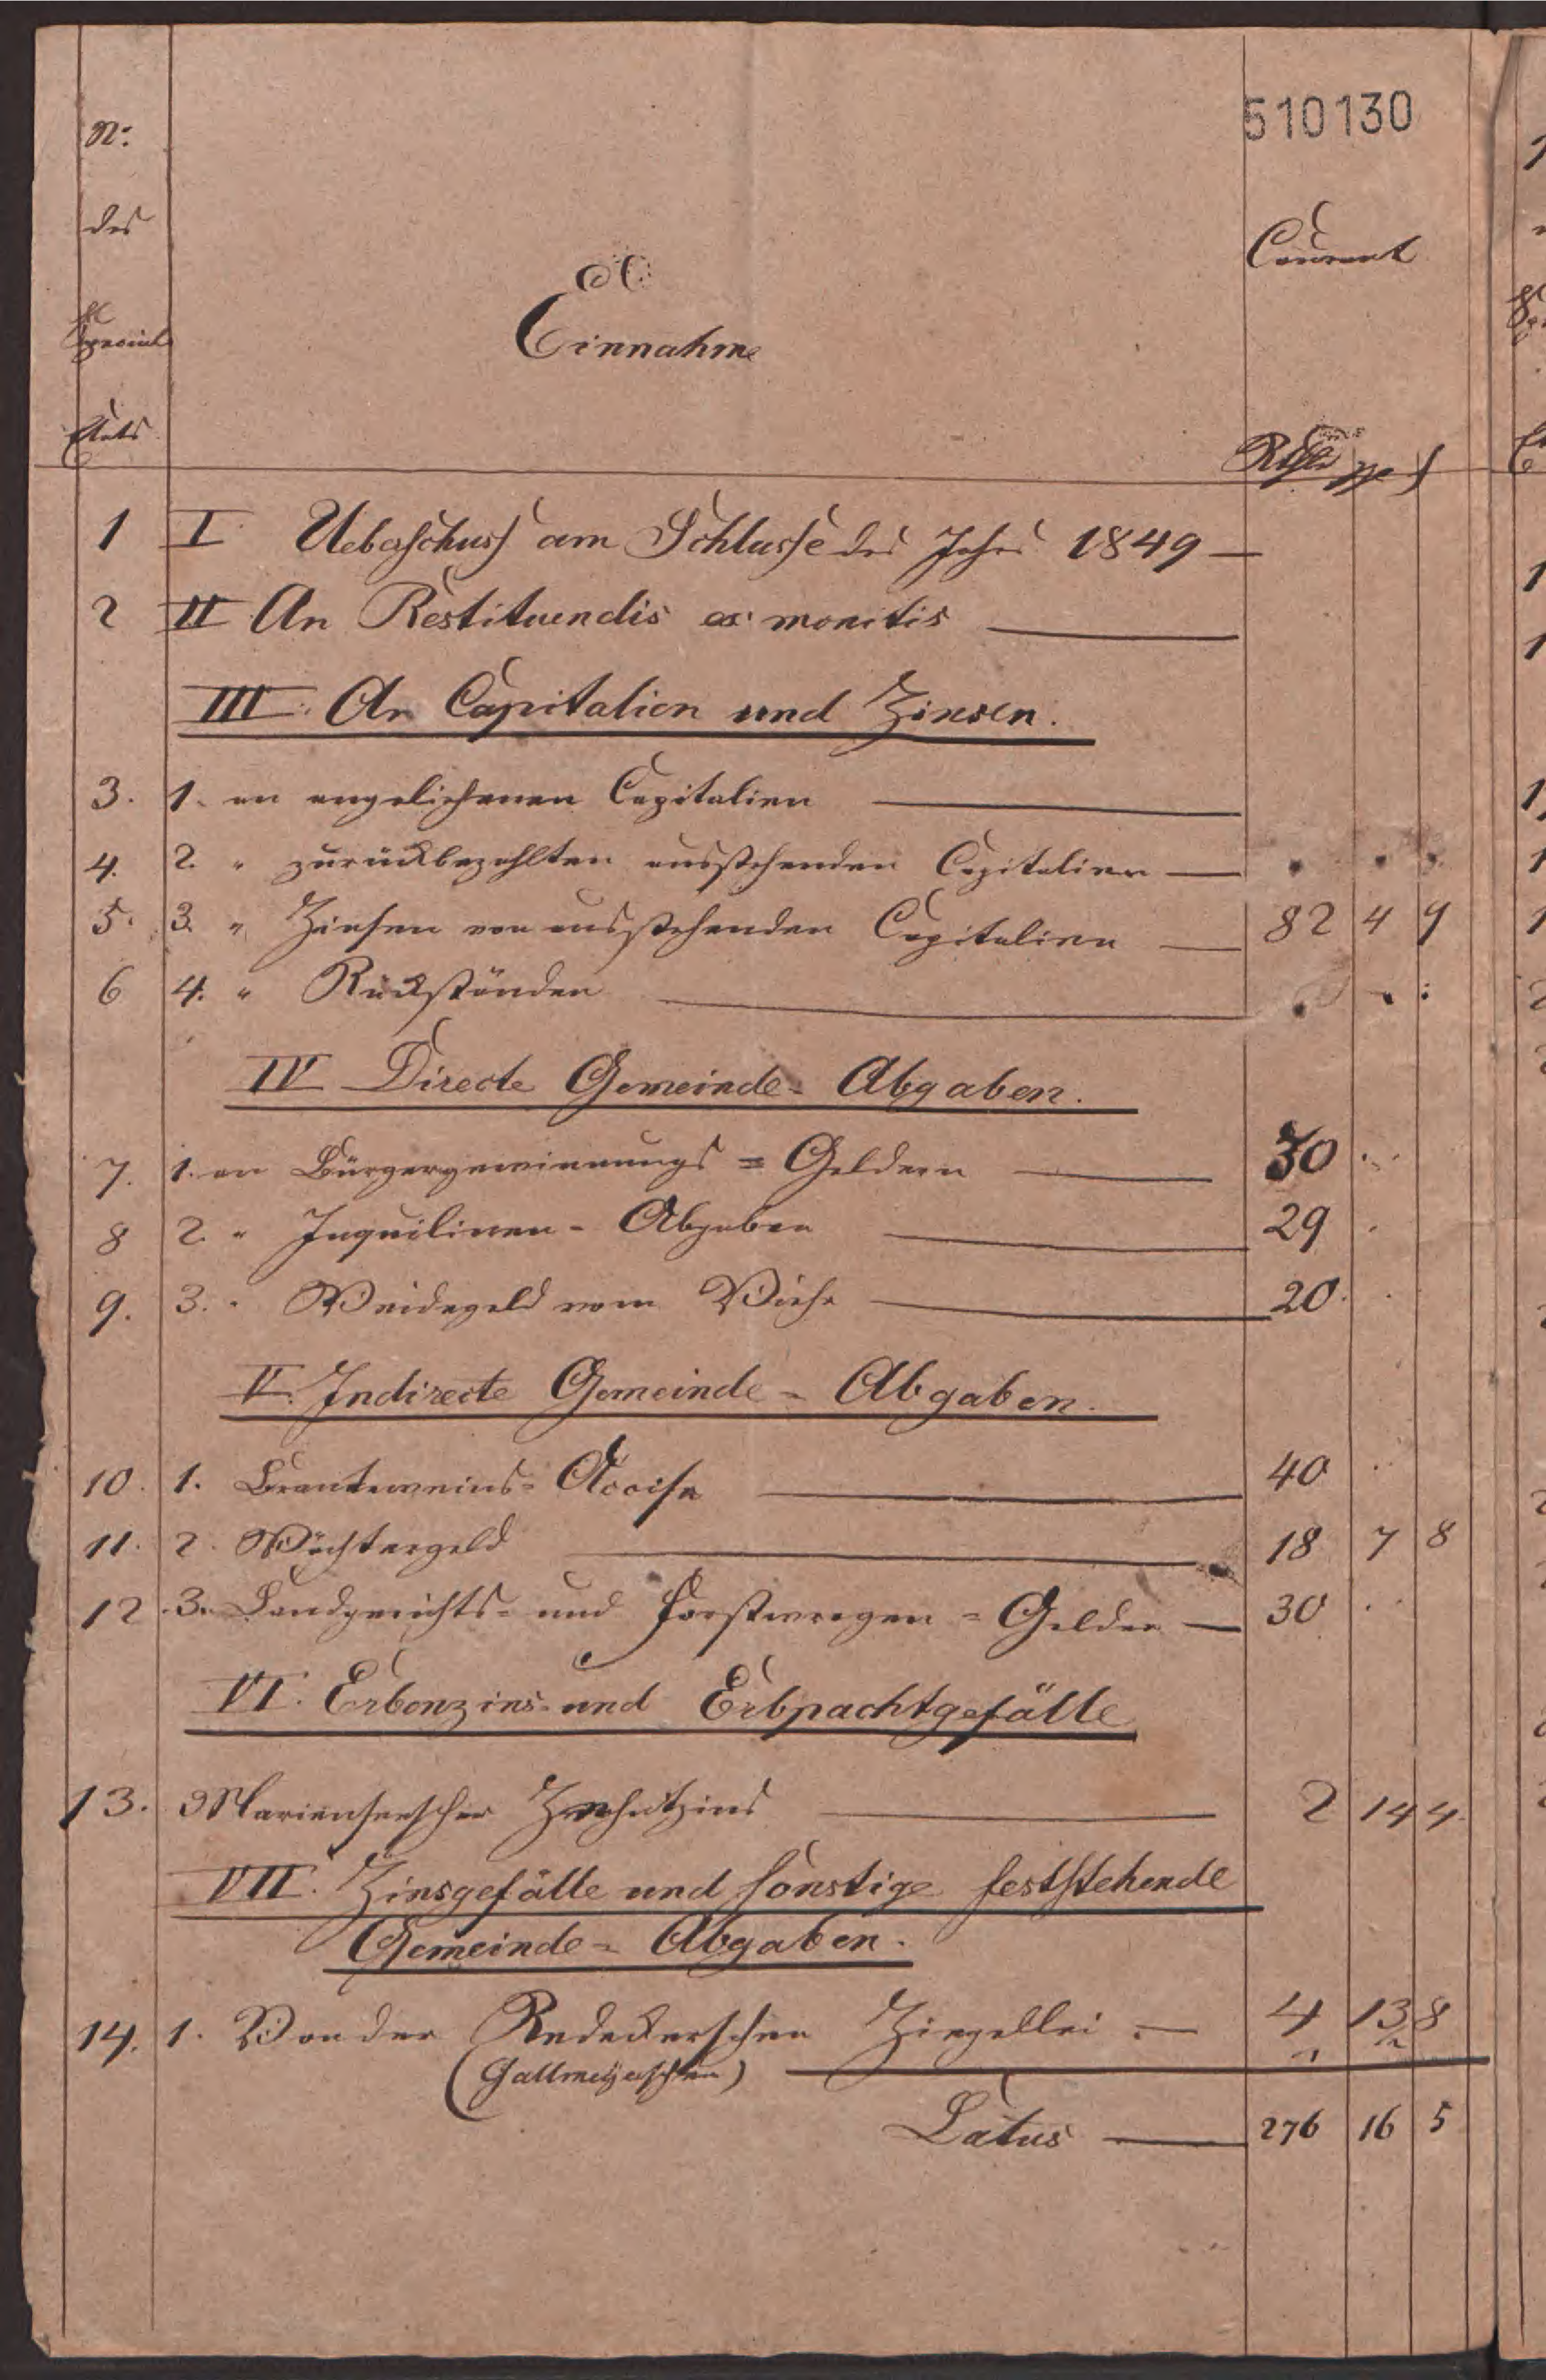 510130
No:
des
Special
Etats
A.
Einnahme
Courant
Rthlr ggr ₰
1 I Ueberschuss am Schlusse des Jahres 1849 —
2 II An Restituendis ex monitis —
III. An Capitalien und Zinsen.
3. 1. an angeliehenen Capitalien —
4. 2. " zurückbezahlten ausstehenden Capitalien — . . .
5. 3. " Zinsen von ausstehenden Capitalien — 82 4 9
6 4. " Rückständen — . . .
IV Directe Gemeinde-Abgaben.
7. 1. an Bürgergewinnungs=Geldern — 50 . .
8 2. " Inquilinen-Abgaben — 29 .
9. 3. " Weidegeld vom Viehe — 20 . .
V. Indirecte Gemeinde-Abgaben.
10. 1. Branteweins-Accise — 40 .
11. 2. Wächtergeld — 18 7 8
12 3. Landgerichts- und Forstwrogen=Gelder — 30 . .
VI. Erbenzins- und Erbpachtgefälle
13. Marienseescher Zehntzins — 2 14 4
VII. Zinsgefälle und sonstige feststehende
Gemeinde-Abgaben.
14. 1. Von der Redekerschen Ziegellei — 4 13 8
(Gallmeyerschen)
Latus — 276 16 5